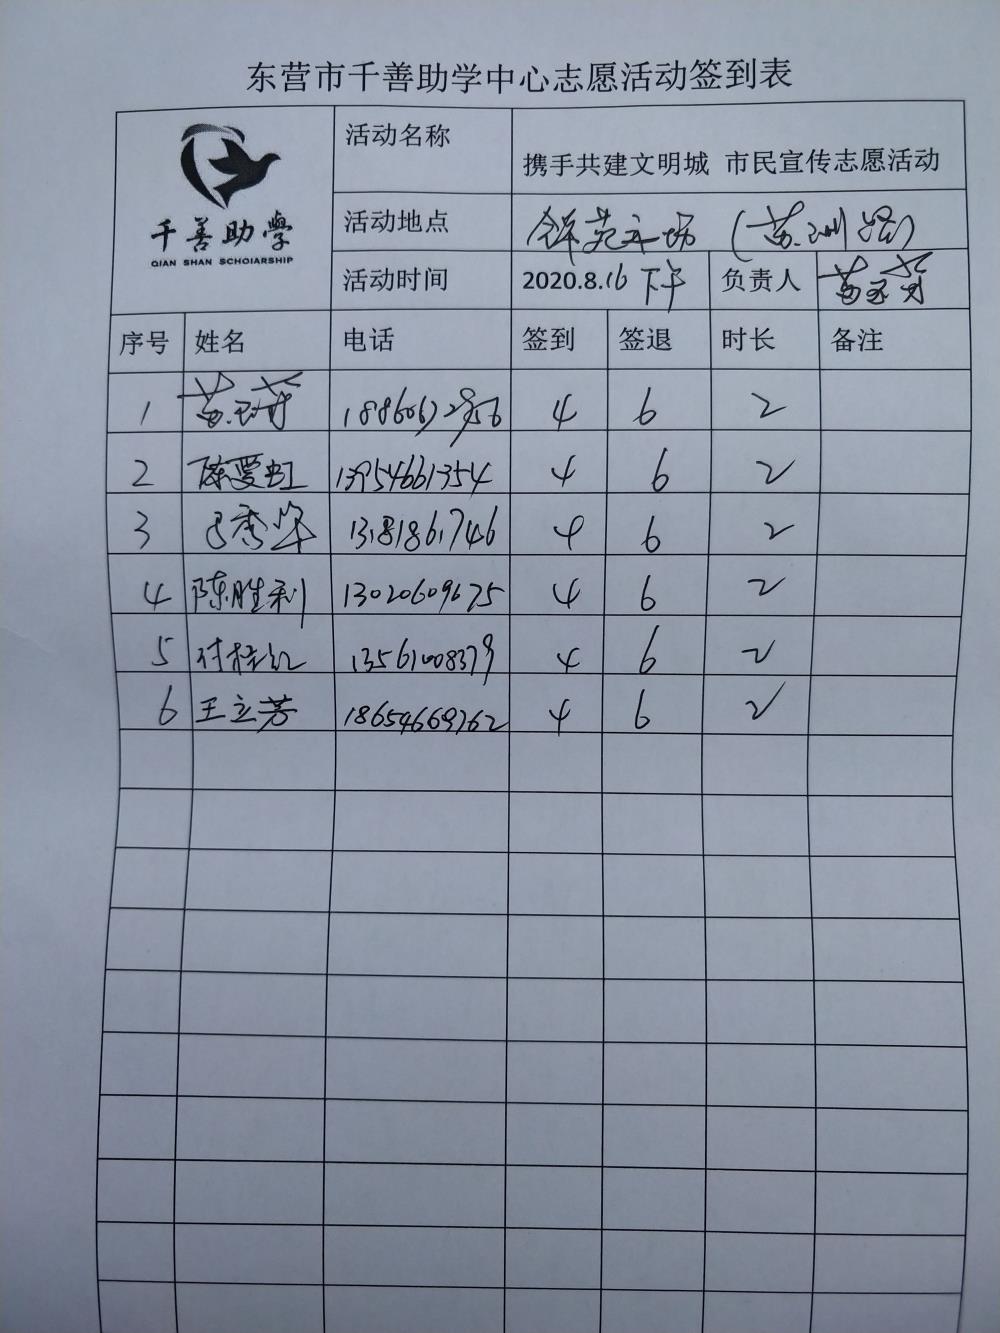 东营市千善助学中心志愿活动签到表
千善助學
QIAN SHAN SCHOIARSHIP
活动名称 携手共建文明城 市民宣传志愿活动
活动地点
活动时间 2020.8.16 下午 负责人
序号 姓名 电话 签到 签退 时长 备注
1 4 6 2
2 陈爱虹 13954661354 4 6 2
3 吕秀华 13181861746 4 6 2
4 陈胜利 13020609675 4 6 2
5 付桂红 13561008379 4 6 2
6 王立芳 18654669762 4 6 2